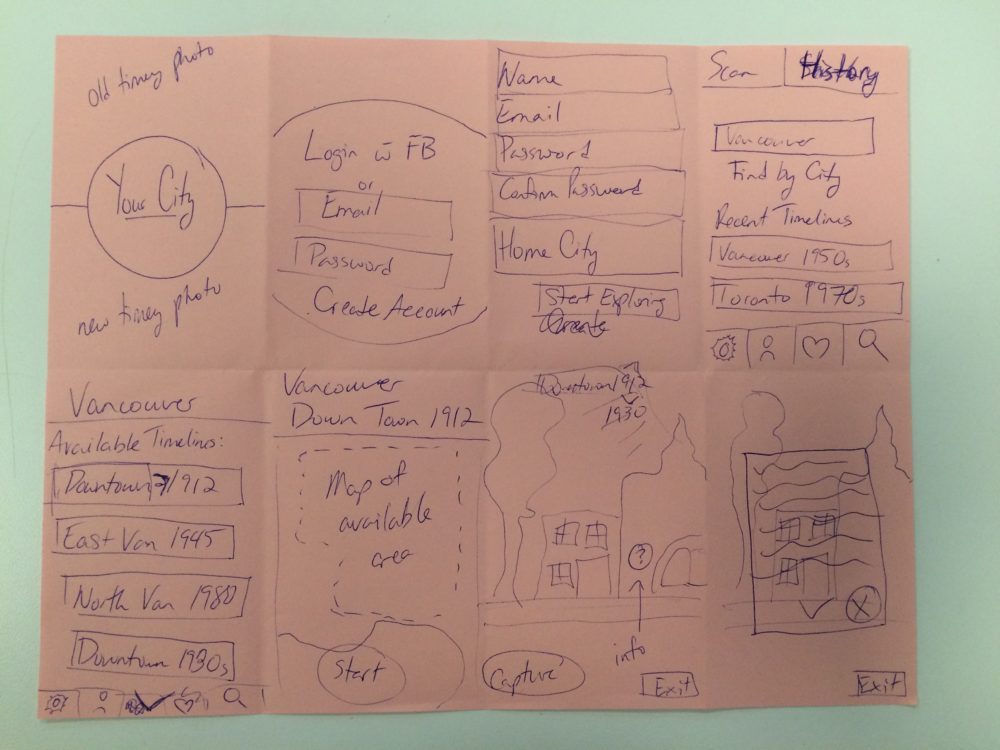 Old timey photo
Your City
new timey photo
Login w̄ FB
or
Email
Password
Create Account
Name
Email
Password
Confirm Password
Home City
Start Exploring
Scan
History
Vancouver
Find by City
Recent Timelines
Vancouver 1950s
Toronto 1970s
Vancouver
Available Timelines:
Downtown 1912
East Van 1945
North Van 1980
Downtown 1930s
Vancouver
Down Town 1912
Map of
available
area
Start
Downtown 1912
1930
?
info
Capture
Exit
X
Exit